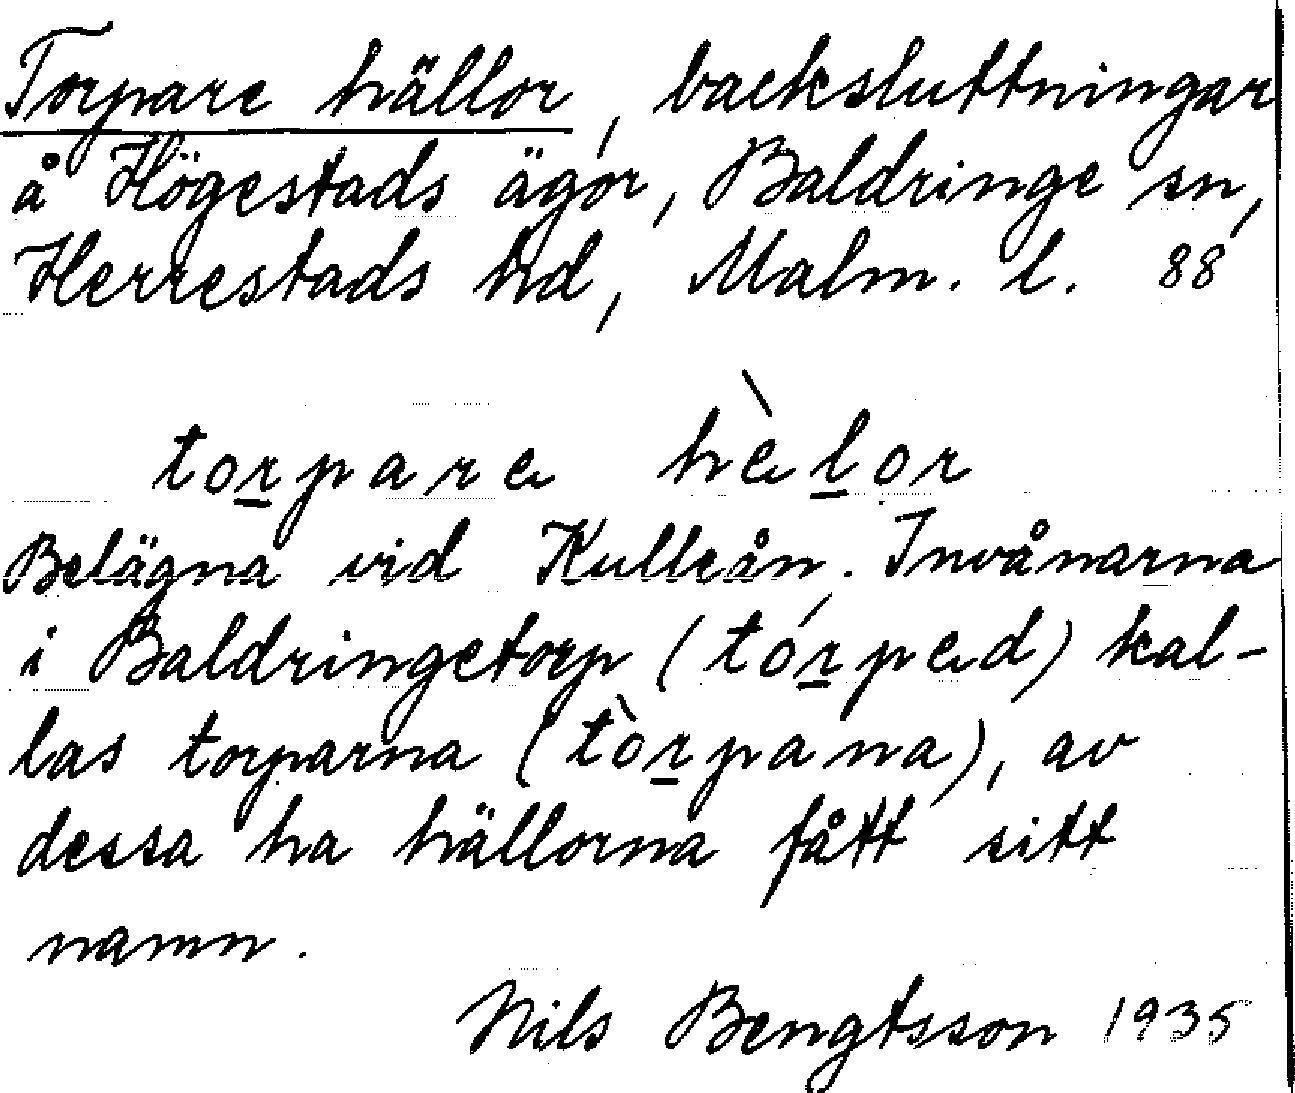 Torpare hällor, backsluttningar
å Högestads ägor, Baldringe sn,
Herrestads hd, Malm. l. 88
torpare hèlor
Belägna vid Kulleån. Invånarna
i Baldringetorp (tórped) kal-
las torparna (tòrpana), av
dessa ha hällorna fått sitt
namn.
Nils Bengtsson 1935